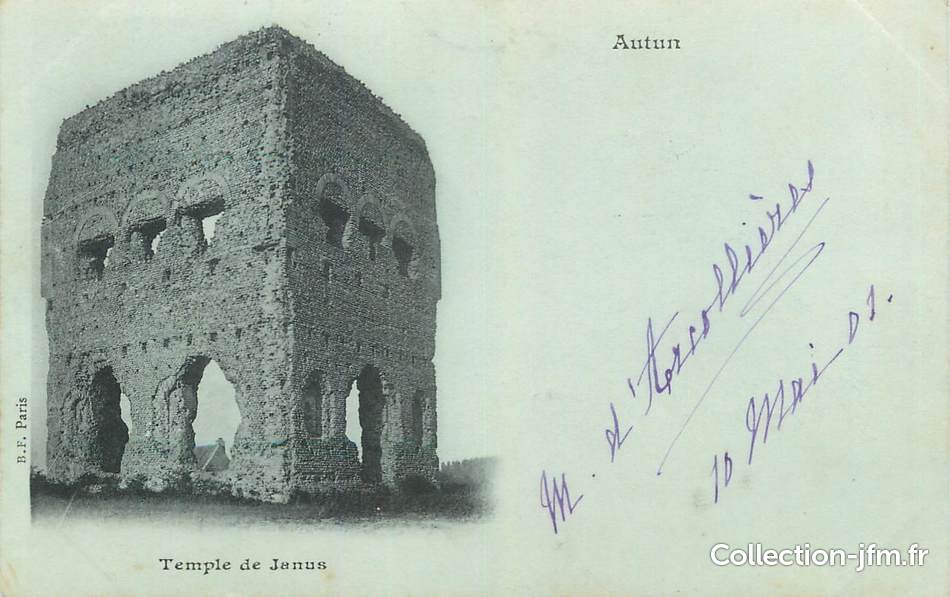 Autun
M. d'Arcollières
10 Mai 01.
B.F. Paris
Temple de Janus
Collection-jfm.fr